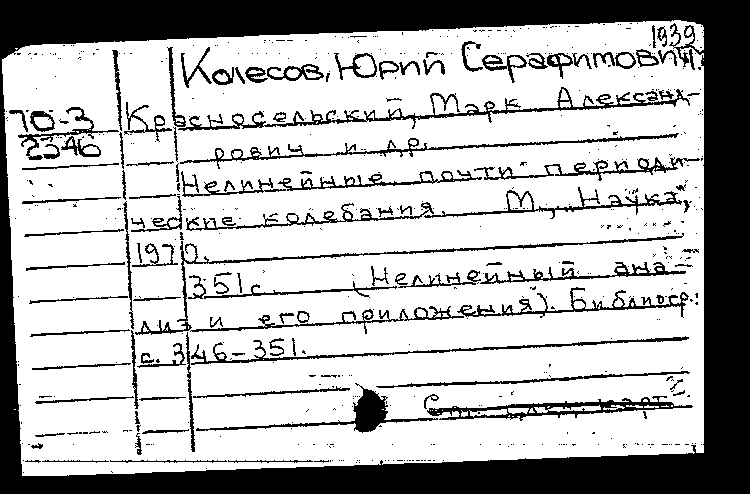 1939
Колесов, Юрий Серафимович
70-3
2346
Красносельский, Марк Александ-
рович и др.
Нелинейные почти-периоди-
ческие колебания. М., "Наука",
1970.
351 с. (Нелинейный ана-
лиз и его приложения). Библиогр.:
с. 346-351.
См. след. карт.